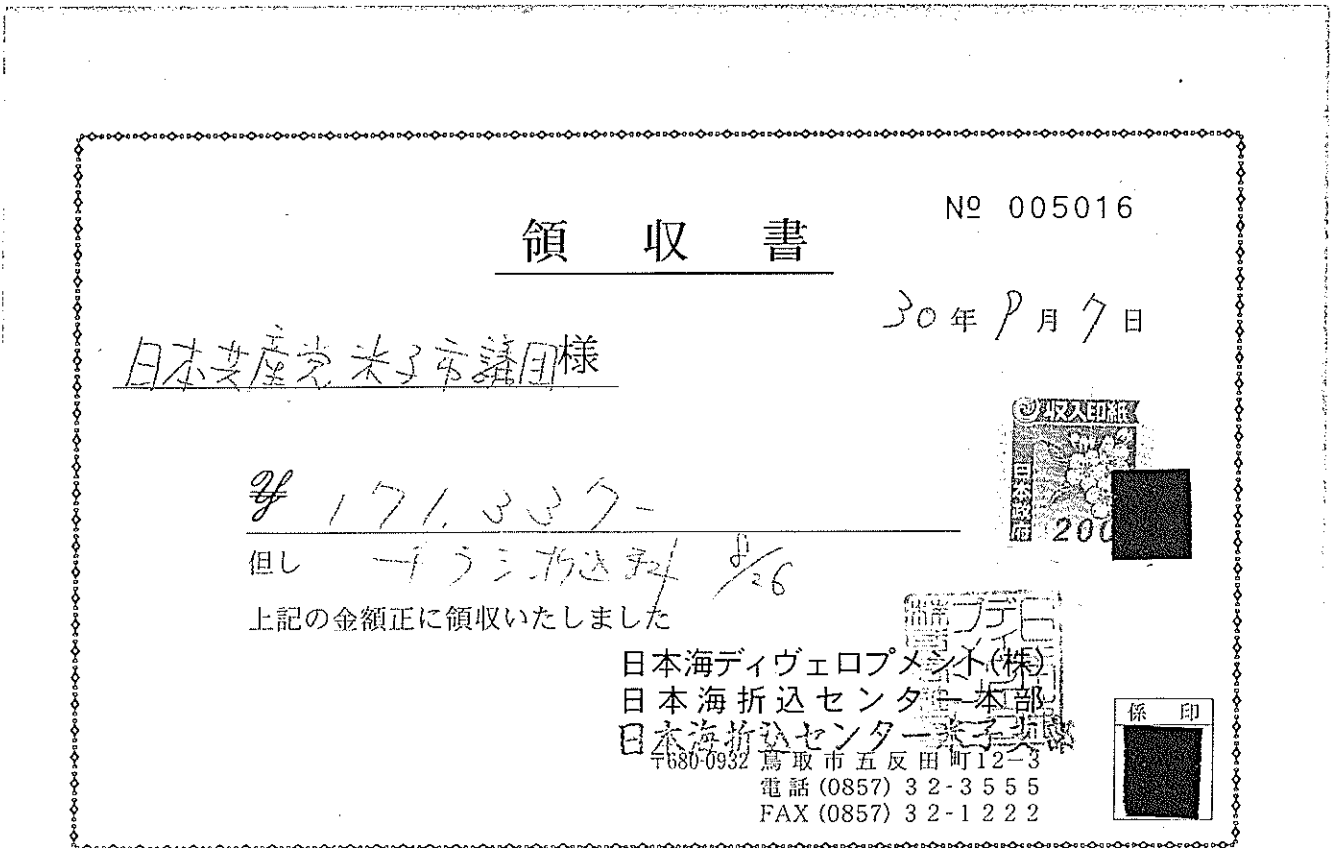 № 005016
領収書
30年9月7日
日本共産党米子市議団様
収入印紙
日本政府
200
¥171,337-
但し チラシ折込料 8/26
上記の金額正に領収いたしました
日本海ディヴェロプメント(株)
日本海折込センター本部
日本海折込センター米子支部
〒680-0932 鳥取市五反田町12-3
電話 (0857) 32-3555
FAX (0857) 32-1222
係印